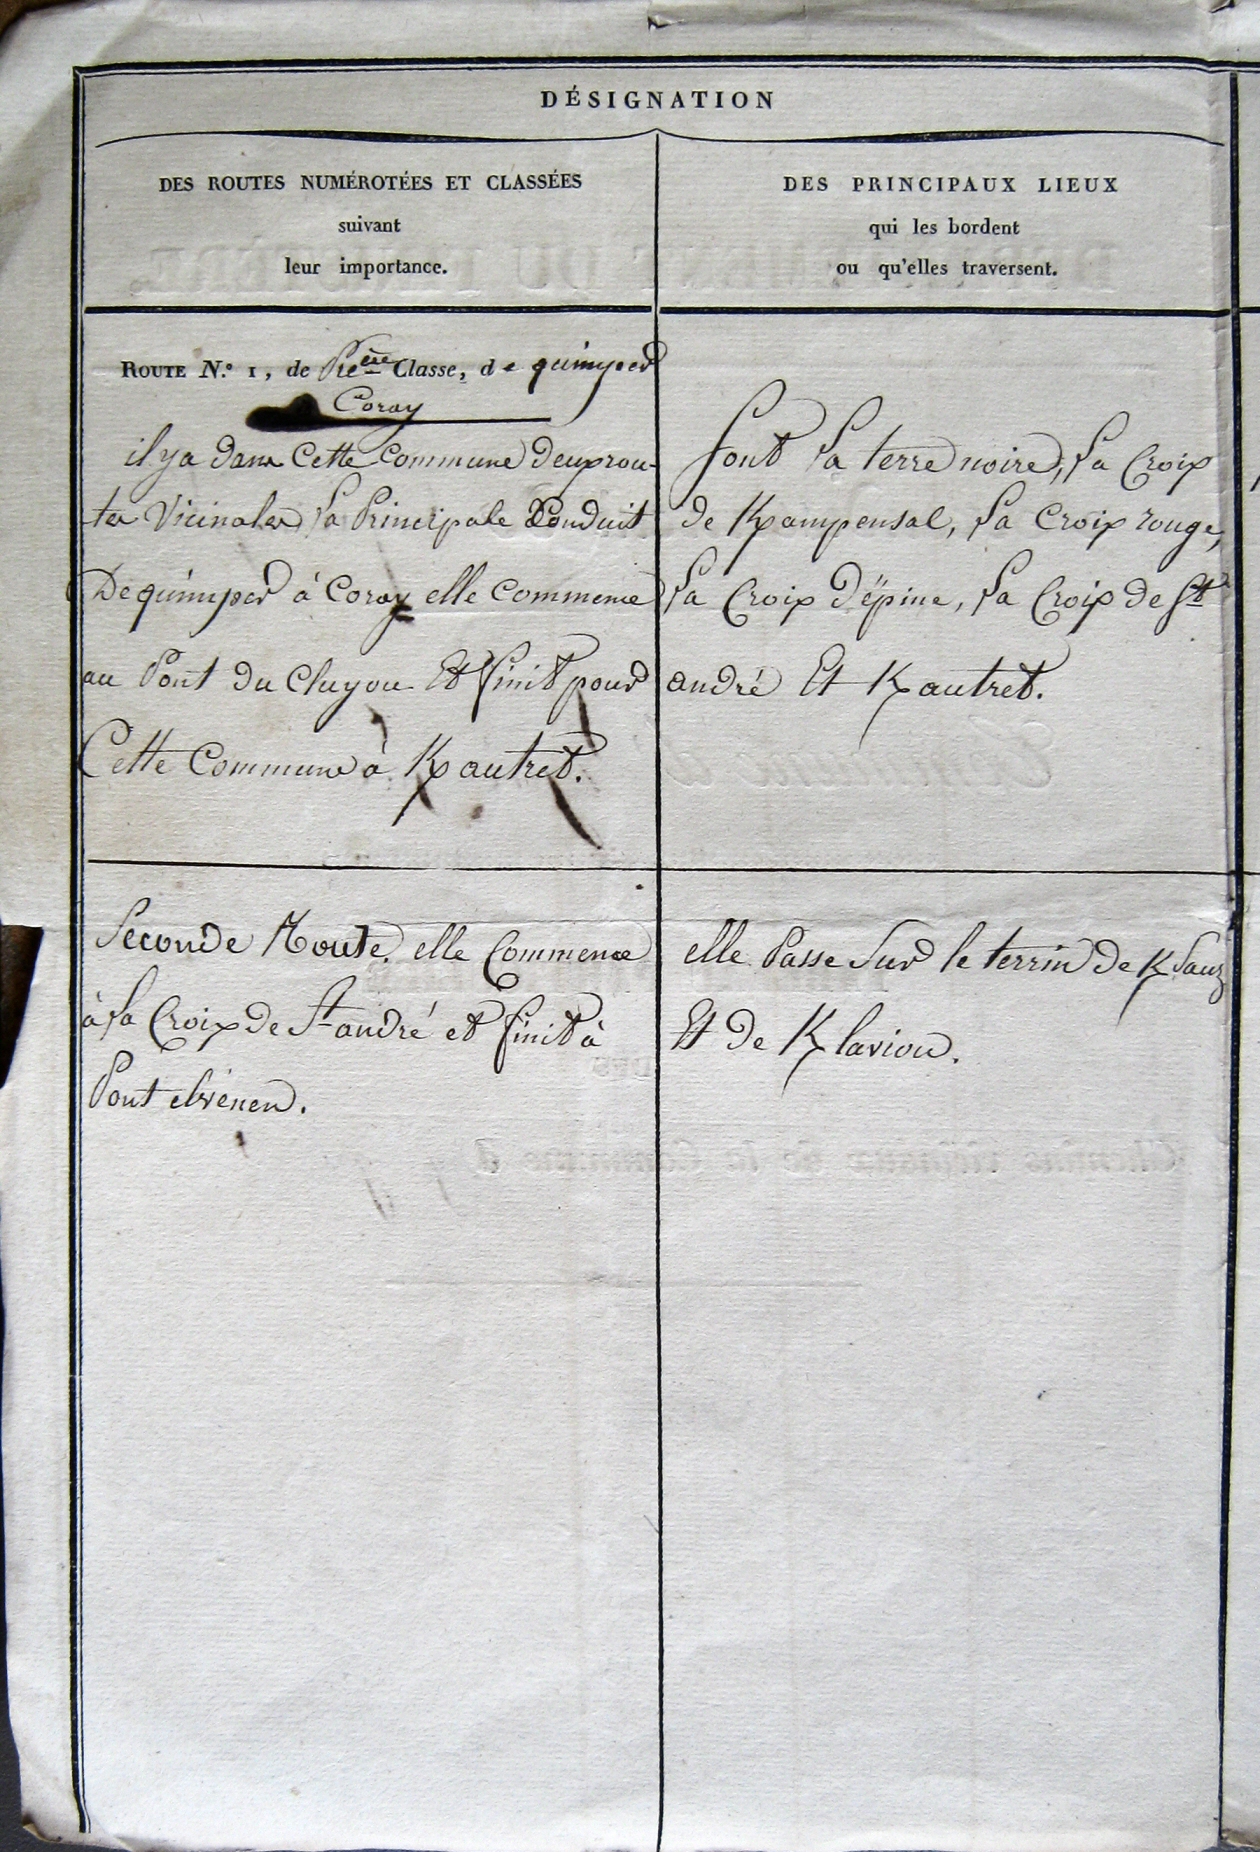 DÉSIGNATION
DES ROUTES NUMÉROTÉES ET CLASSÉES
suivant
leur importance.
DES PRINCIPAUX LIEUX
qui les bordent
ou qu'elles traversent.
ROUTE N.º 1, de Pre.ère Classe, de quimper
Coray
il ya dans Cette Commune deux rou-
tes Vicinales, La Principale Conduit
De quimper à Coray elle commence
au Pont du Cluyou Et finit pour
Cette Commune à K autret.
Sont La terre noire, La Croix
de Kampensal, La Croix rouge,
La Croix D'épine, La Croix de St
andré Et K autret.
Seconde Route. elle Commence
à La Croix de St andré et finit à
Pont ebvénen.
elle Passe Sur le terrin de K Sauz
Et de K laviou.